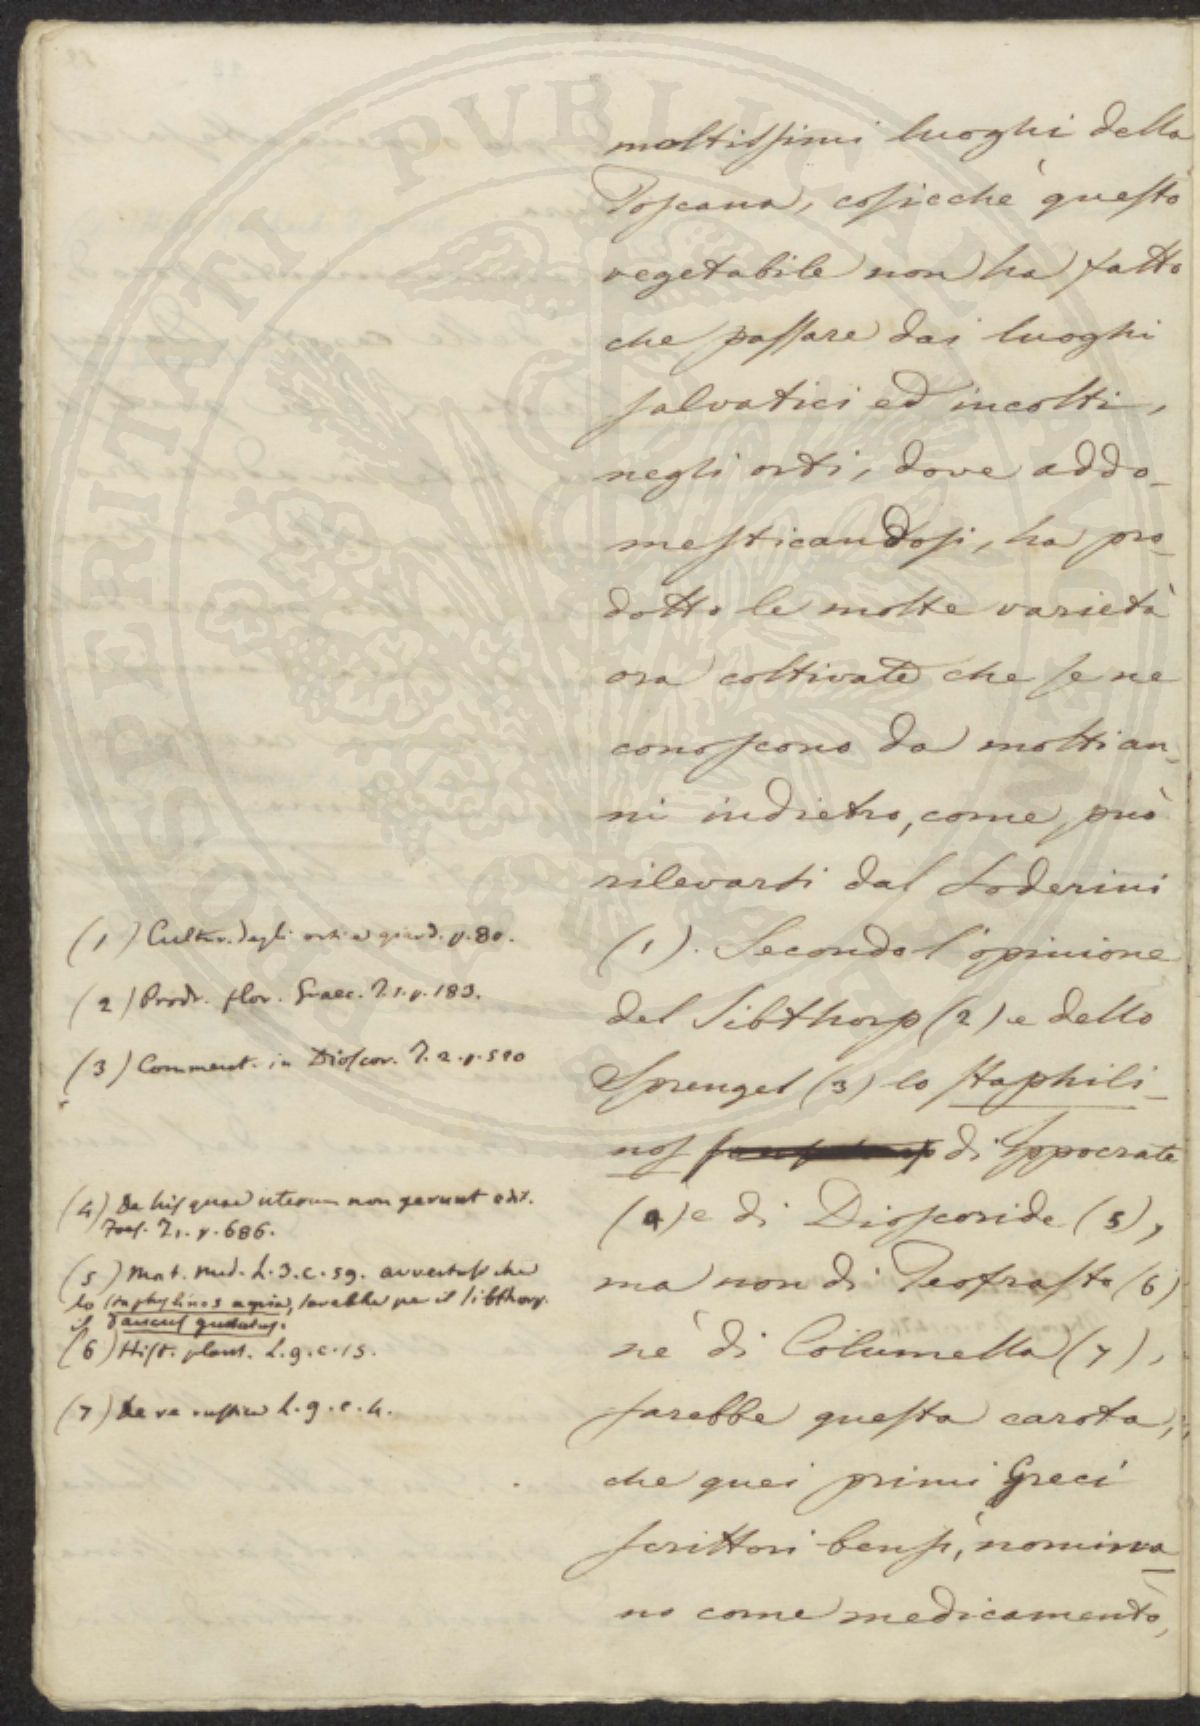 moltissimi luoghi della
Toscana, cosicchè questo
vegetabile non ha fatto
che passare dai luoghi
salvatici ed incolti,
negli orti, dove addo-
mesticandosi, ha pro-
dotto le molte varietà
ora coltivate che se ne
conoscono da molti an-
ni indietro, come può
rilevarsi dal Soderini
(1). Secondo l'opinione
del Sibthorp (2) e dello
Sprengel (3) lo staphili-
nos di Ippocrate
(4) e di Dioscoride (5),
ma non di Teofrasto (6)
nè di Columella (7),
sarebbe questa carota,
che quei primi Greci
scrittori bensì, nomina
no come medicamento,
(1) Cultur. degli orti e giard. p. 80.
(2) Prodr. flor. Graec. T. 1. p. 183.
(3) Comment. in Dioscor. T. 2. p. 510
(4) De his quae uterum non gerunt edit.
Foes. T. 1. p. 686.
(5) Mat. med. L. 3. c. 59. avvertasi che
lo staphylinos agria, sarebbe per il Sibthorp.
il daucus
(6) Hist. plant. L. 9. c. 15.
(7) De re rustica L. 9. c. 4.
PROSPERITATI PUBLICAE